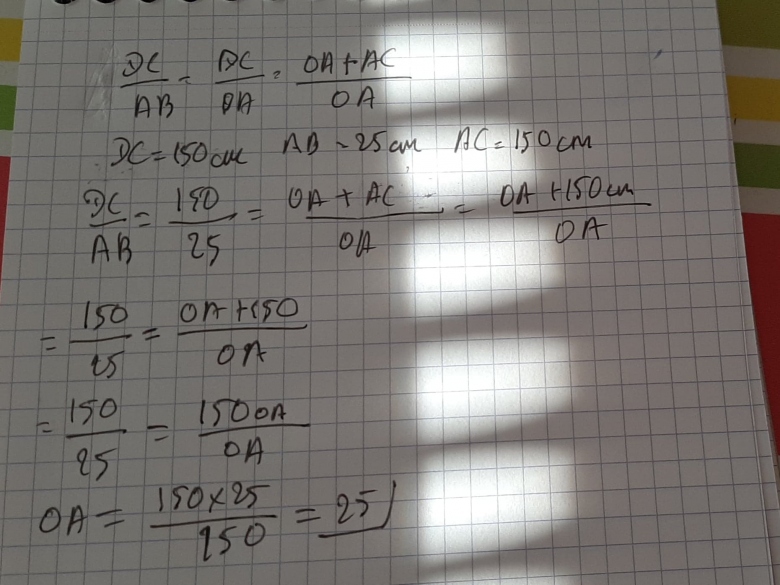 DC/AB = DC/OA = OA+AC/OA
DC = 150cm AB = 25cm AC = 150cm
DC/AB = 150/25 = OA + AC/OA = OA + 150cm/OA
= 150/25 = OA+150/OA
= 150/25 = 150OA/OA
OA = 150×25/150 = 25